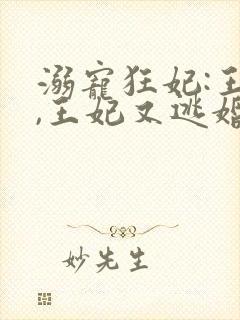 溺寵狂妃:王
,王妃又逃婚
妙先生